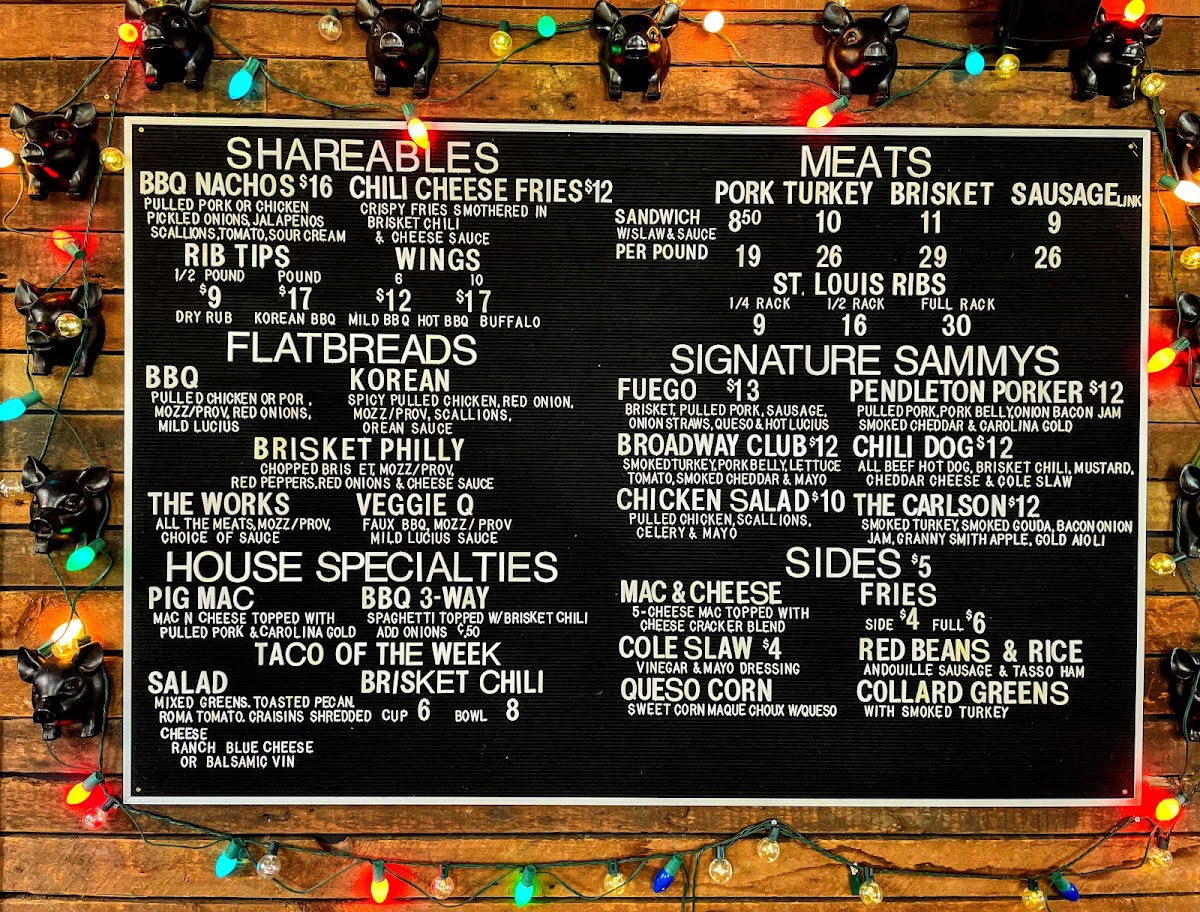 SHAREABLES
BBQ NACHOS $16
PULLED PORK OR CHICKEN
PICKLED ONIONS, JALAPENOS
SCALLIONS, TOMATO, SOUR CREAM
CHILI CHEESE FRIES $12
CRISPY FRIES SMOTHERED IN
BRISKET CHILI
& CHEESE SAUCE
RIB TIPS
1/2 POUND POUND
$9 $17
DRY RUB KOREAN BBQ
WINGS
6 10
$12 $17
MILD BBQ HOT BBQ BUFFALO
FLATBREADS
BBQ
PULLED CHICKEN OR POR ,
MOZZ/PROV, RED ONIONS,
MILD LUCIUS
KOREAN
SPICY PULLED CHICKEN, RED ONION,
MOZZ/PROV, SCALLIONS,
OREAN SAUCE
BRISKET PHILLY
CHOPPED BRIS ET, MOZZ/PROV,
RED PEPPERS, RED ONIONS & CHEESE SAUCE
THE WORKS
ALL THE MEATS, MOZZ/PROV,
CHOICE OF SAUCE
VEGGIE Q
FAUX BBQ, MOZZ/PROV
MILD LUCIUS SAUCE
HOUSE SPECIALTIES
PIG MAC
MAC N CHEESE TOPPED WITH
PULLED PORK & CAROLINA GOLD
BBQ 3-WAY
SPAGHETTI TOPPED W/BRISKET CHILI
ADD ONIONS ¢.50
TACO OF THE WEEK
SALAD
MIXED GREENS. TOASTED PECAN.
ROMA TOMATO. CRAISINS SHREDDED
CHEESE
RANCH BLUE CHEESE
OR BALSAMIC VIN
BRISKET CHILI
CUP 6 BOWL 8
MEATS
PORK TURKEY BRISKET SAUSAGE LINK
SANDWICH 8.50 10 11 9
W/SLAW & SAUCE
PER POUND 19 26 29 26
ST. LOUIS RIBS
1/4 RACK 1/2 RACK FULL RACK
9 16 30
SIGNATURE SAMMYS
FUEGO $13
BRISKET, PULLED PORK, SAUSAGE,
ONION STRAWS, QUESO & HOT LUCIUS
PENDLETON PORKER $12
PULLED PORK, PORK BELLY, ONION BACON JAM
SMOKED CHEDDAR & CAROLINA GOLD
BROADWAY CLUB $12
SMOKED TURKEY, PORK BELLY, LETTUCE
TOMATO, SMOKED CHEDDAR & MAYO
CHILI DOG $12
ALL BEEF HOT DOG, BRISKET CHILI, MUSTARD,
CHEDDAR CHEESE & COLE SLAW
CHICKEN SALAD $10
PULLED CHICKEN, SCALLIONS,
CELERY & MAYO
THE CARLSON $12
SMOKED TURKEY, SMOKED GOUDA, BACON ONION
JAM, GRANNY SMITH APPLE, GOLD AIOLI
SIDES $5
MAC & CHEESE
5-CHEESE MAC TOPPED WITH
CHEESE CRACKER BLEND
FRIES
SIDE $4 FULL $6
COLE SLAW $4
VINEGAR & MAYO DRESSING
RED BEANS & RICE
ANDOUILLE SAUSAGE & TASSO HAM
QUESO CORN
SWEET CORN MAQUE CHOUX W/QUESO
COLLARD GREENS
WITH SMOKED TURKEY